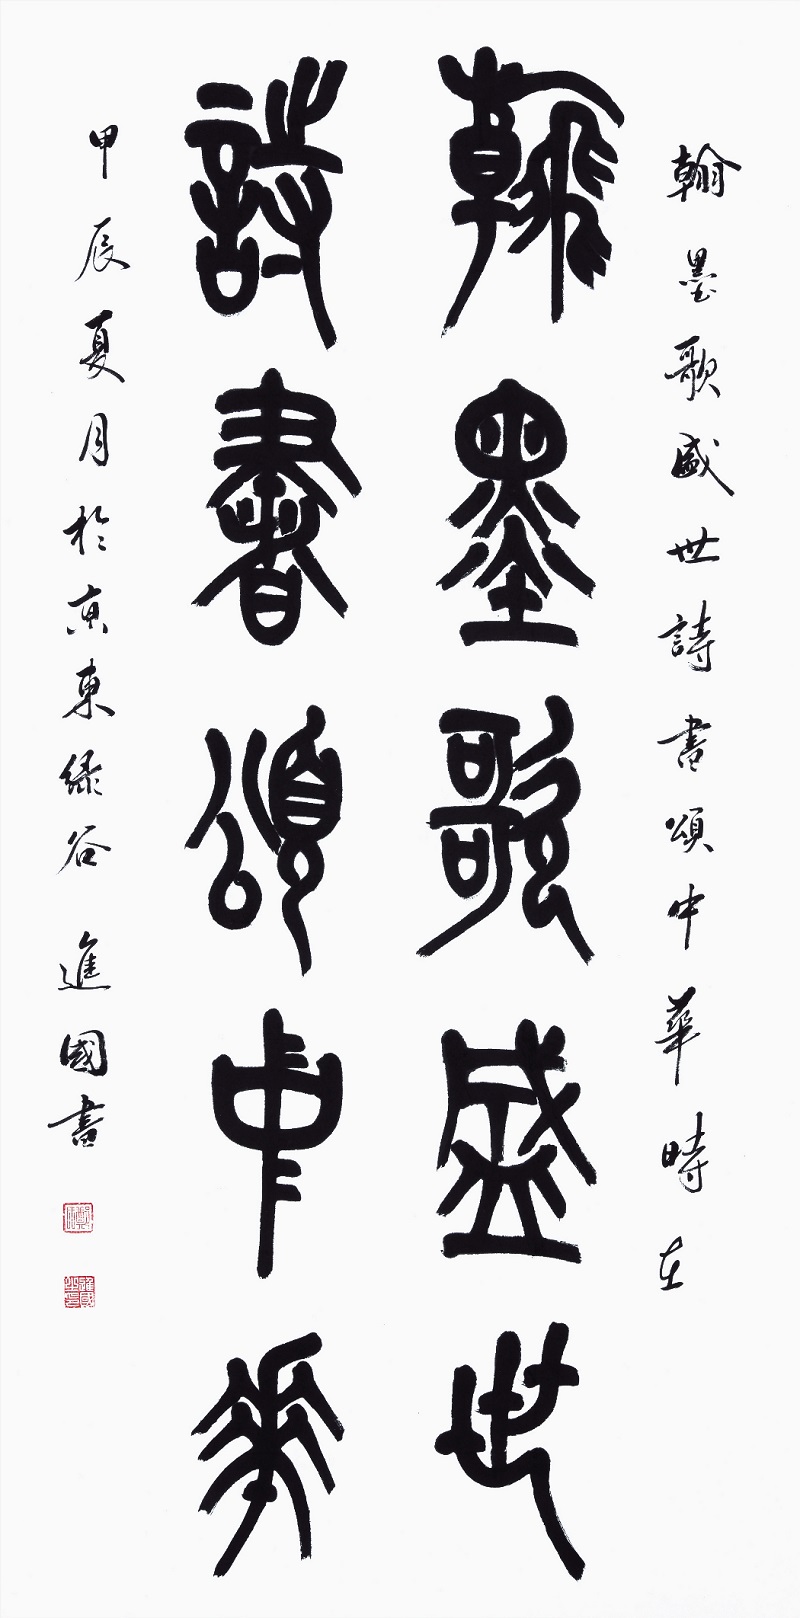 翰墨歌盛世詩書頌中華時在
翰墨歌盛世
詩書頌中華
甲辰夏月於京東綠谷進國書